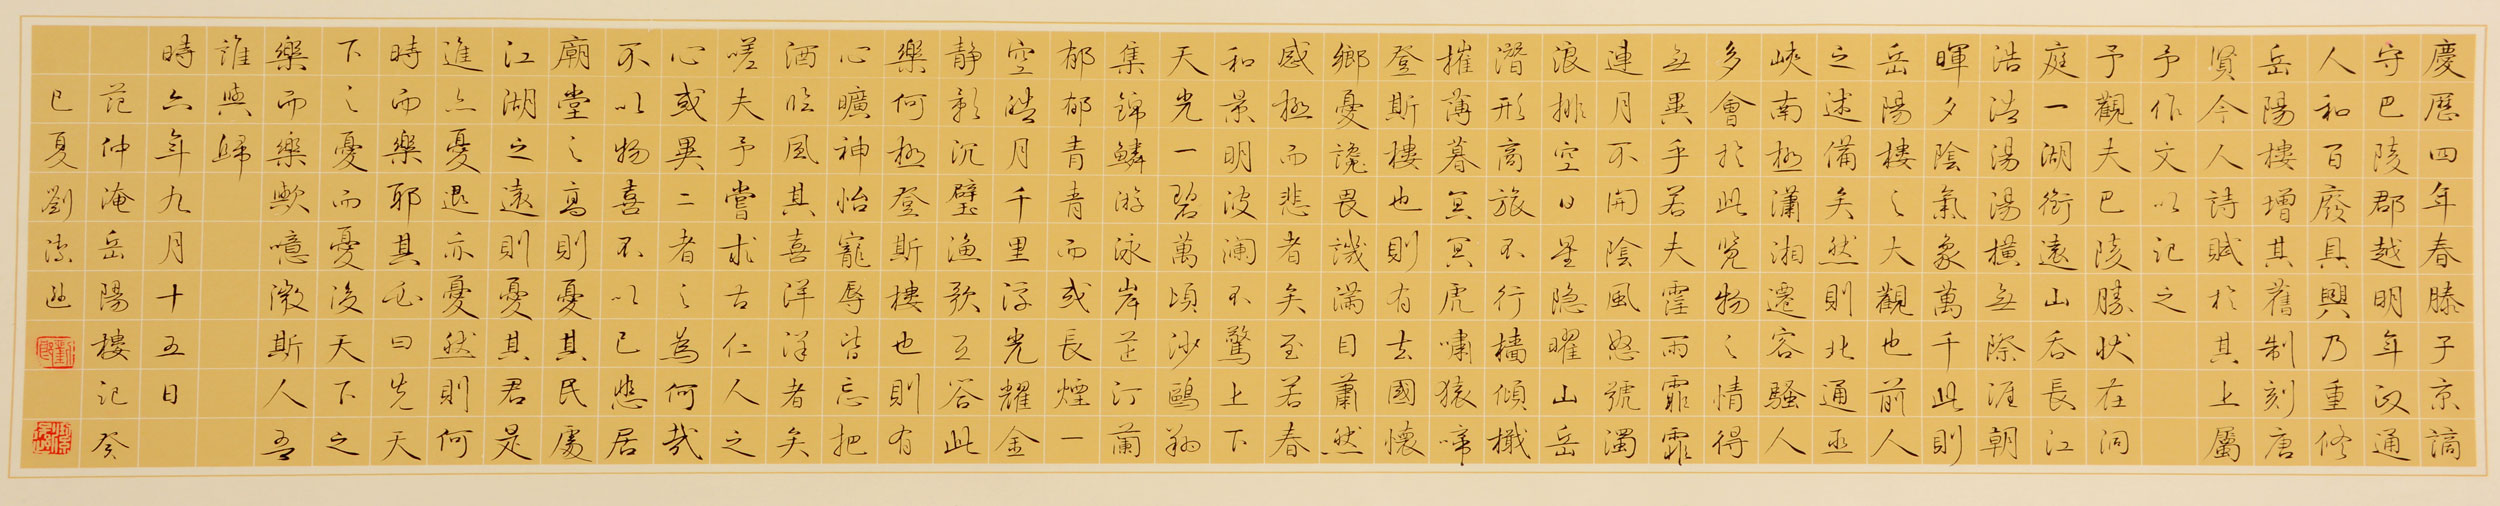 慶歷四年春滕子京謫
守巴陵郡越明年政通
人和百廢具興乃重修
岳陽樓增其舊制刻唐
賢今人詩賦於其上屬
予作文以記之
予觀夫巴陵勝狀在洞
庭一湖銜遠山吞長江
浩浩湯湯橫無際涯朝
暉夕陰氣象萬千此則
岳陽樓之大觀也前人
之述備矣然則北通巫
峽南極瀟湘遷客騷人
多會於此覽物之情得
無異乎若夫霪雨霏霏
連月不開陰風怒號濁
浪排空日星隱曜山岳
潛形商旅不行檣傾檝
摧薄暮冥冥虎嘯猿啼
登斯樓也則有去國懷
鄉憂讒畏譏滿目蕭然
感極而悲者矣至若春
和景明波瀾不驚上下
天光一碧萬頃沙鷗翔
集錦鱗游泳岸芷汀蘭
郁郁青青而或長煙一
空皓月千里浮光耀金
静影沉璧漁歌互答此
樂何極登斯樓也則有
心曠神怡寵辱皆忘把
酒臨風其喜洋洋者矣
嗟夫予嘗求古仁人之
心或異二者之為何哉
不以物喜不以己悲居
廟堂之高則憂其民處
江湖之遠則憂其君是
進亦憂退亦憂然則何
時而樂耶其必曰先天
下之憂而憂後天下之
樂而樂歟噫微斯人吾
誰與歸
時六年九月十五日
范仲淹岳陽樓記癸
巳夏劉